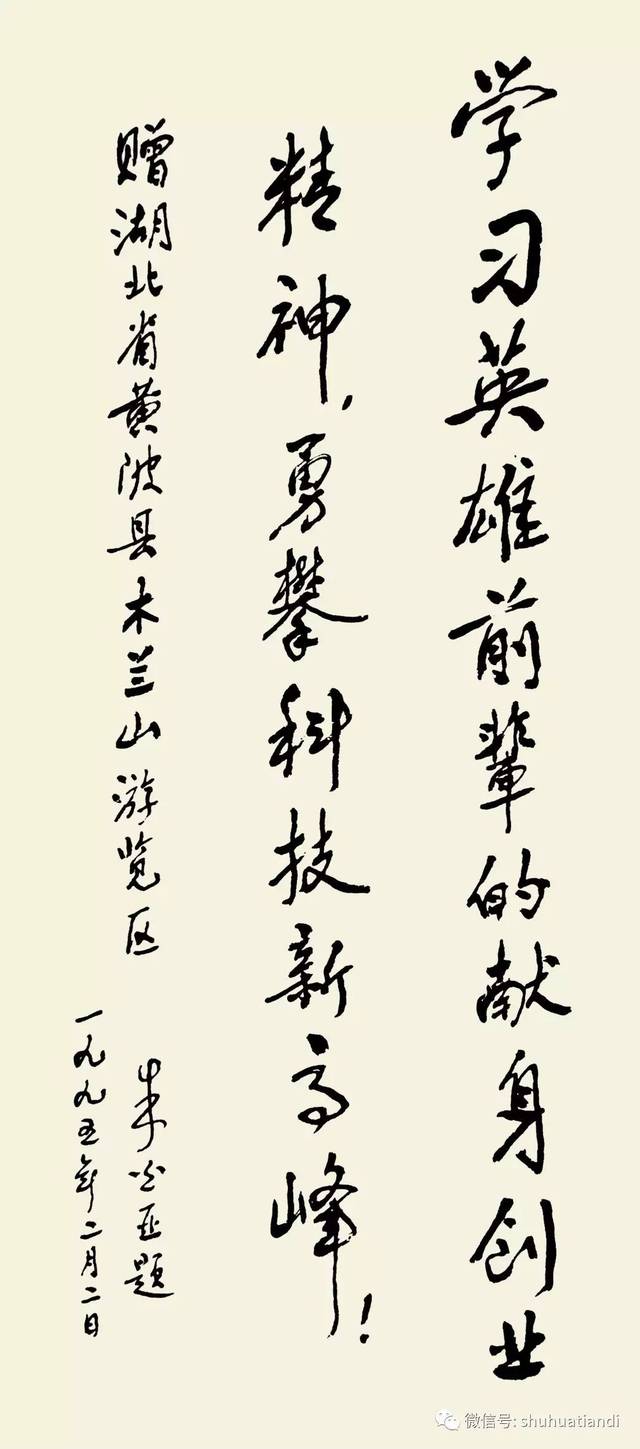 学习英雄前辈的献身创业
精神，勇攀科技新高峰！
赠湖北省黄陂县木兰山游览区
朱光亚题
一九九五年二月二日
微信号: shuhuatiandi